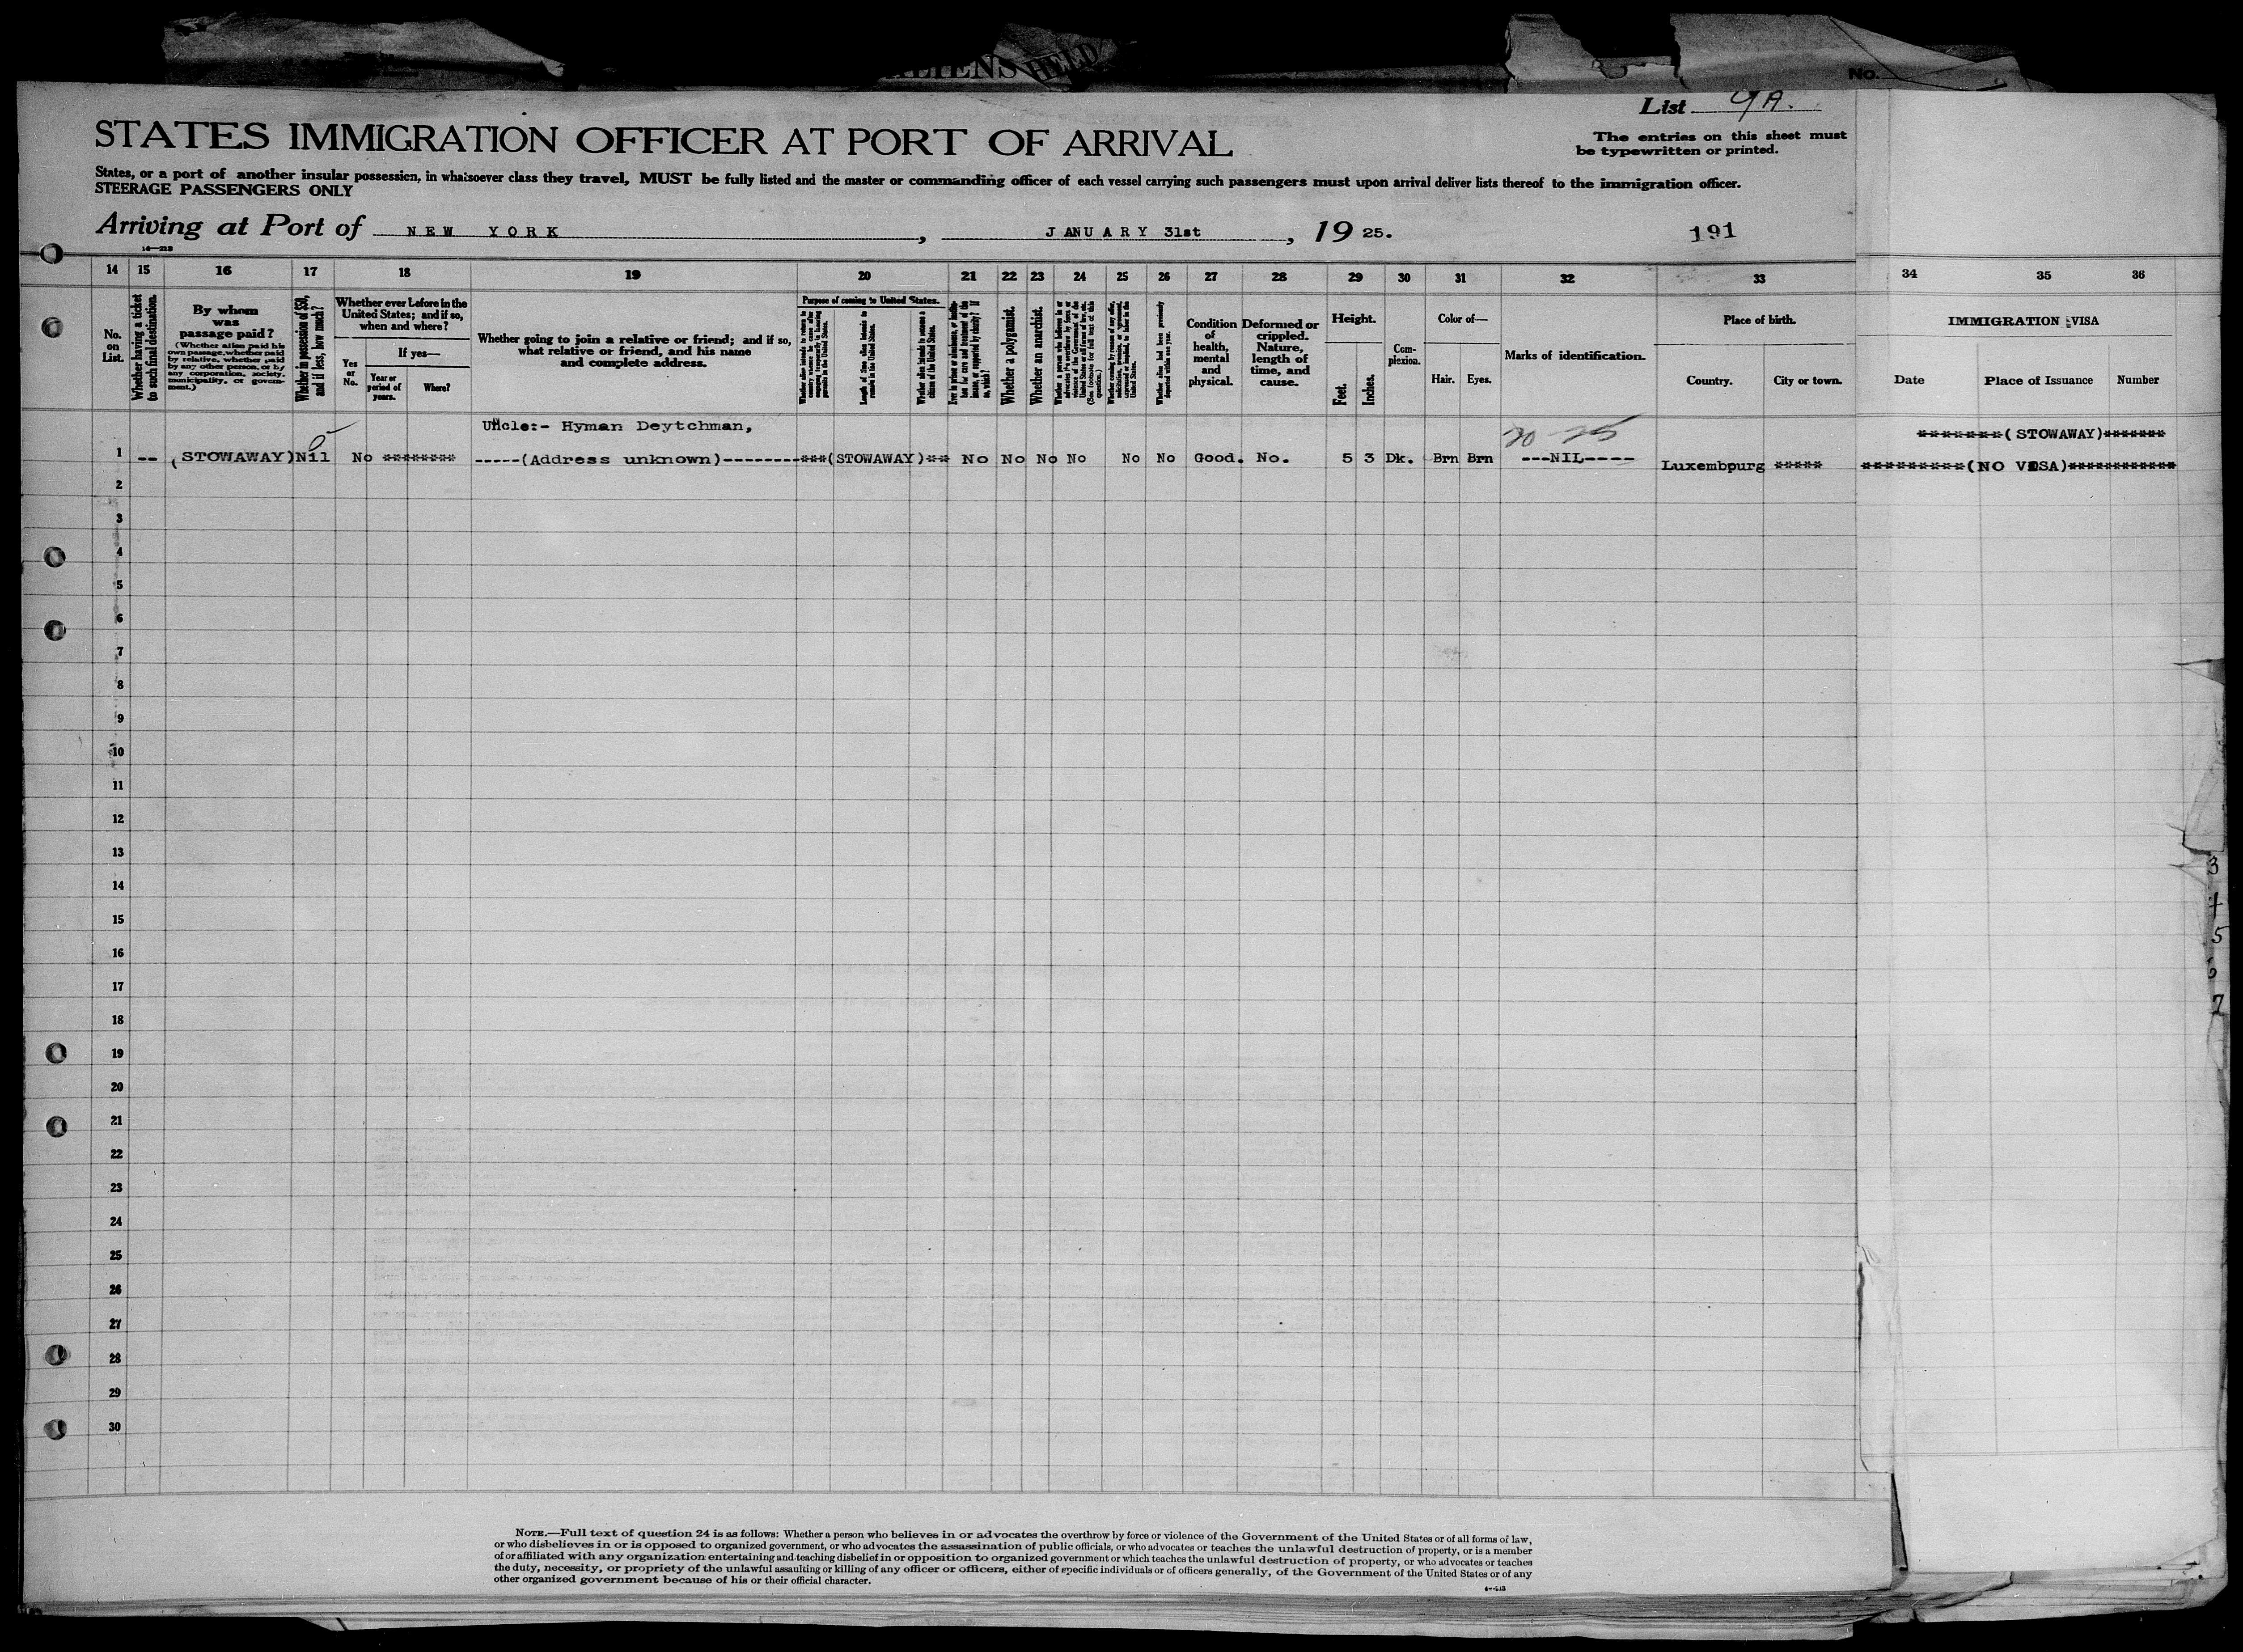 ALIENS HELD
No.
List 4A.
STATES IMMIGRATION OFFICER AT PORT OF ARRIVAL
The entries on this sheet must
be typewritten or printed.
States, or a port of another insular possession, in whatsoever class they travel, MUST be fully listed and the master or commanding officer of each vessel carrying such passengers must upon arrival deliver lists thereof to the immigration officer.
STEERAGE PASSENGERS ONLY
Arriving at Port of NEW YORK, JANUARY 31st, 19 25. 191
14—213
14 15 16 17 18 19 20 21 22 23 24 25 26 27 28 29 30 31 32 33 34 35 36
No.
on
List.
Whether having a ticket
to such final destination.
By whom
was
passage paid?
(Whether alien paid his
own passage, whether paid
by relative, whether paid
by any other person, or by
any corporation, society,
municipality, or govern-
ment.)
Whether in possession of $50,
and if less, how much?
Whether ever before in the
United States; and if so,
when and where?
Yes
or
No.
If yes—
Year or
period of
years.
Where?
Whether going to join a relative or friend; and if so,
what relative or friend, and his name
and complete address.
Purpose of coming to United States.
Length of time alien intends to
remain in the United States.
Whether alien intends to become a
citizen of the United States.
Whether a polygamist.
Whether an anarchist.
(See footnote for full text of this
question.)
Whether alien had been previously
deported within one year.
Condition
of
health,
mental
and
physical.
Deformed or
crippled.
Nature,
length of
time, and
cause.
Height.
Feet.
Inches.
Com-
plexion.
Color of—
Hair.
Eyes.
Marks of identification.
Place of birth.
Country.
City or town.
IMMIGRATION VISA
Date
Place of Issuance
Number
Uncle:- Hyman Deytchman,
*******(STOWAWAY)*******
1 -- (STOWAWAY) Nil No ******** -----(Address unknown)--------***(STOWAWAY)** No No No No No No Good. No. 5 3 Dk. Brn Brn ---NIL----- Luxembpurg ***** *********(NO VISA)************
2
3
4
5
6
7
8
9
10
11
12
13
14
15
16
17
18
19
20
21
22
23
24
25
26
27
28
29
30
3
4
5
6
7
NOTE.—Full text of question 24 is as follows: Whether a person who believes in or advocates the overthrow by force or violence of the Government of the United States or of all forms of law,
or who disbelieves in or is opposed to organized government, or who advocates the assassination of public officials, or who advocates or teaches the unlawful destruction of property, or is a member
of or affiliated with any organization entertaining and teaching disbelief in or opposition to organized government or which teaches the unlawful destruction of property, or who advocates or teaches
the duty, necessity, or propriety of the unlawful assaulting or killing of any officer or officers, either of specific individuals or of officers generally, of the Government of the United States or of any
other organized government because of his or their official character.